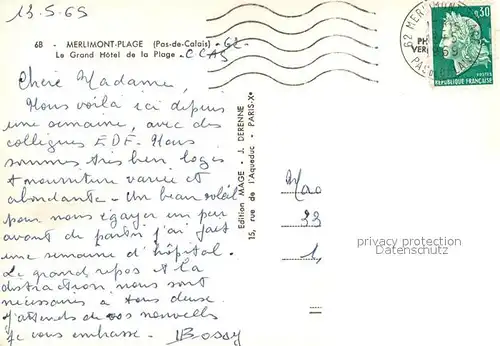 13.5.69
68 - MERLIMONT-PLAGE (Pas-de-Calais) - 62
Le Grand Hôtel de la Plage - CCAS
Chère Madame,
Nous voilà ici depuis
une semaine, avec des
collègues EDF. Nous
sommes très bien logés
+ nourriture variée et
abondante - Un beau soleil
pour nous égayer un peu
avant de partir j'ai fait
une semaine d'hôpital.
Le grand repos et la
distraction, nous sont
nécessaires à tous deux.
J'attends de vos nouvelles
Je vous embrasse. Bossy
Edition MAGE - J. DERENNE
15, rue de l'Aqueduc - PARIS-Xe
33
62 MERLIMONT
PAS
0,30
POSTES
REPUBLIQUE FRANÇAISE
privacy protection